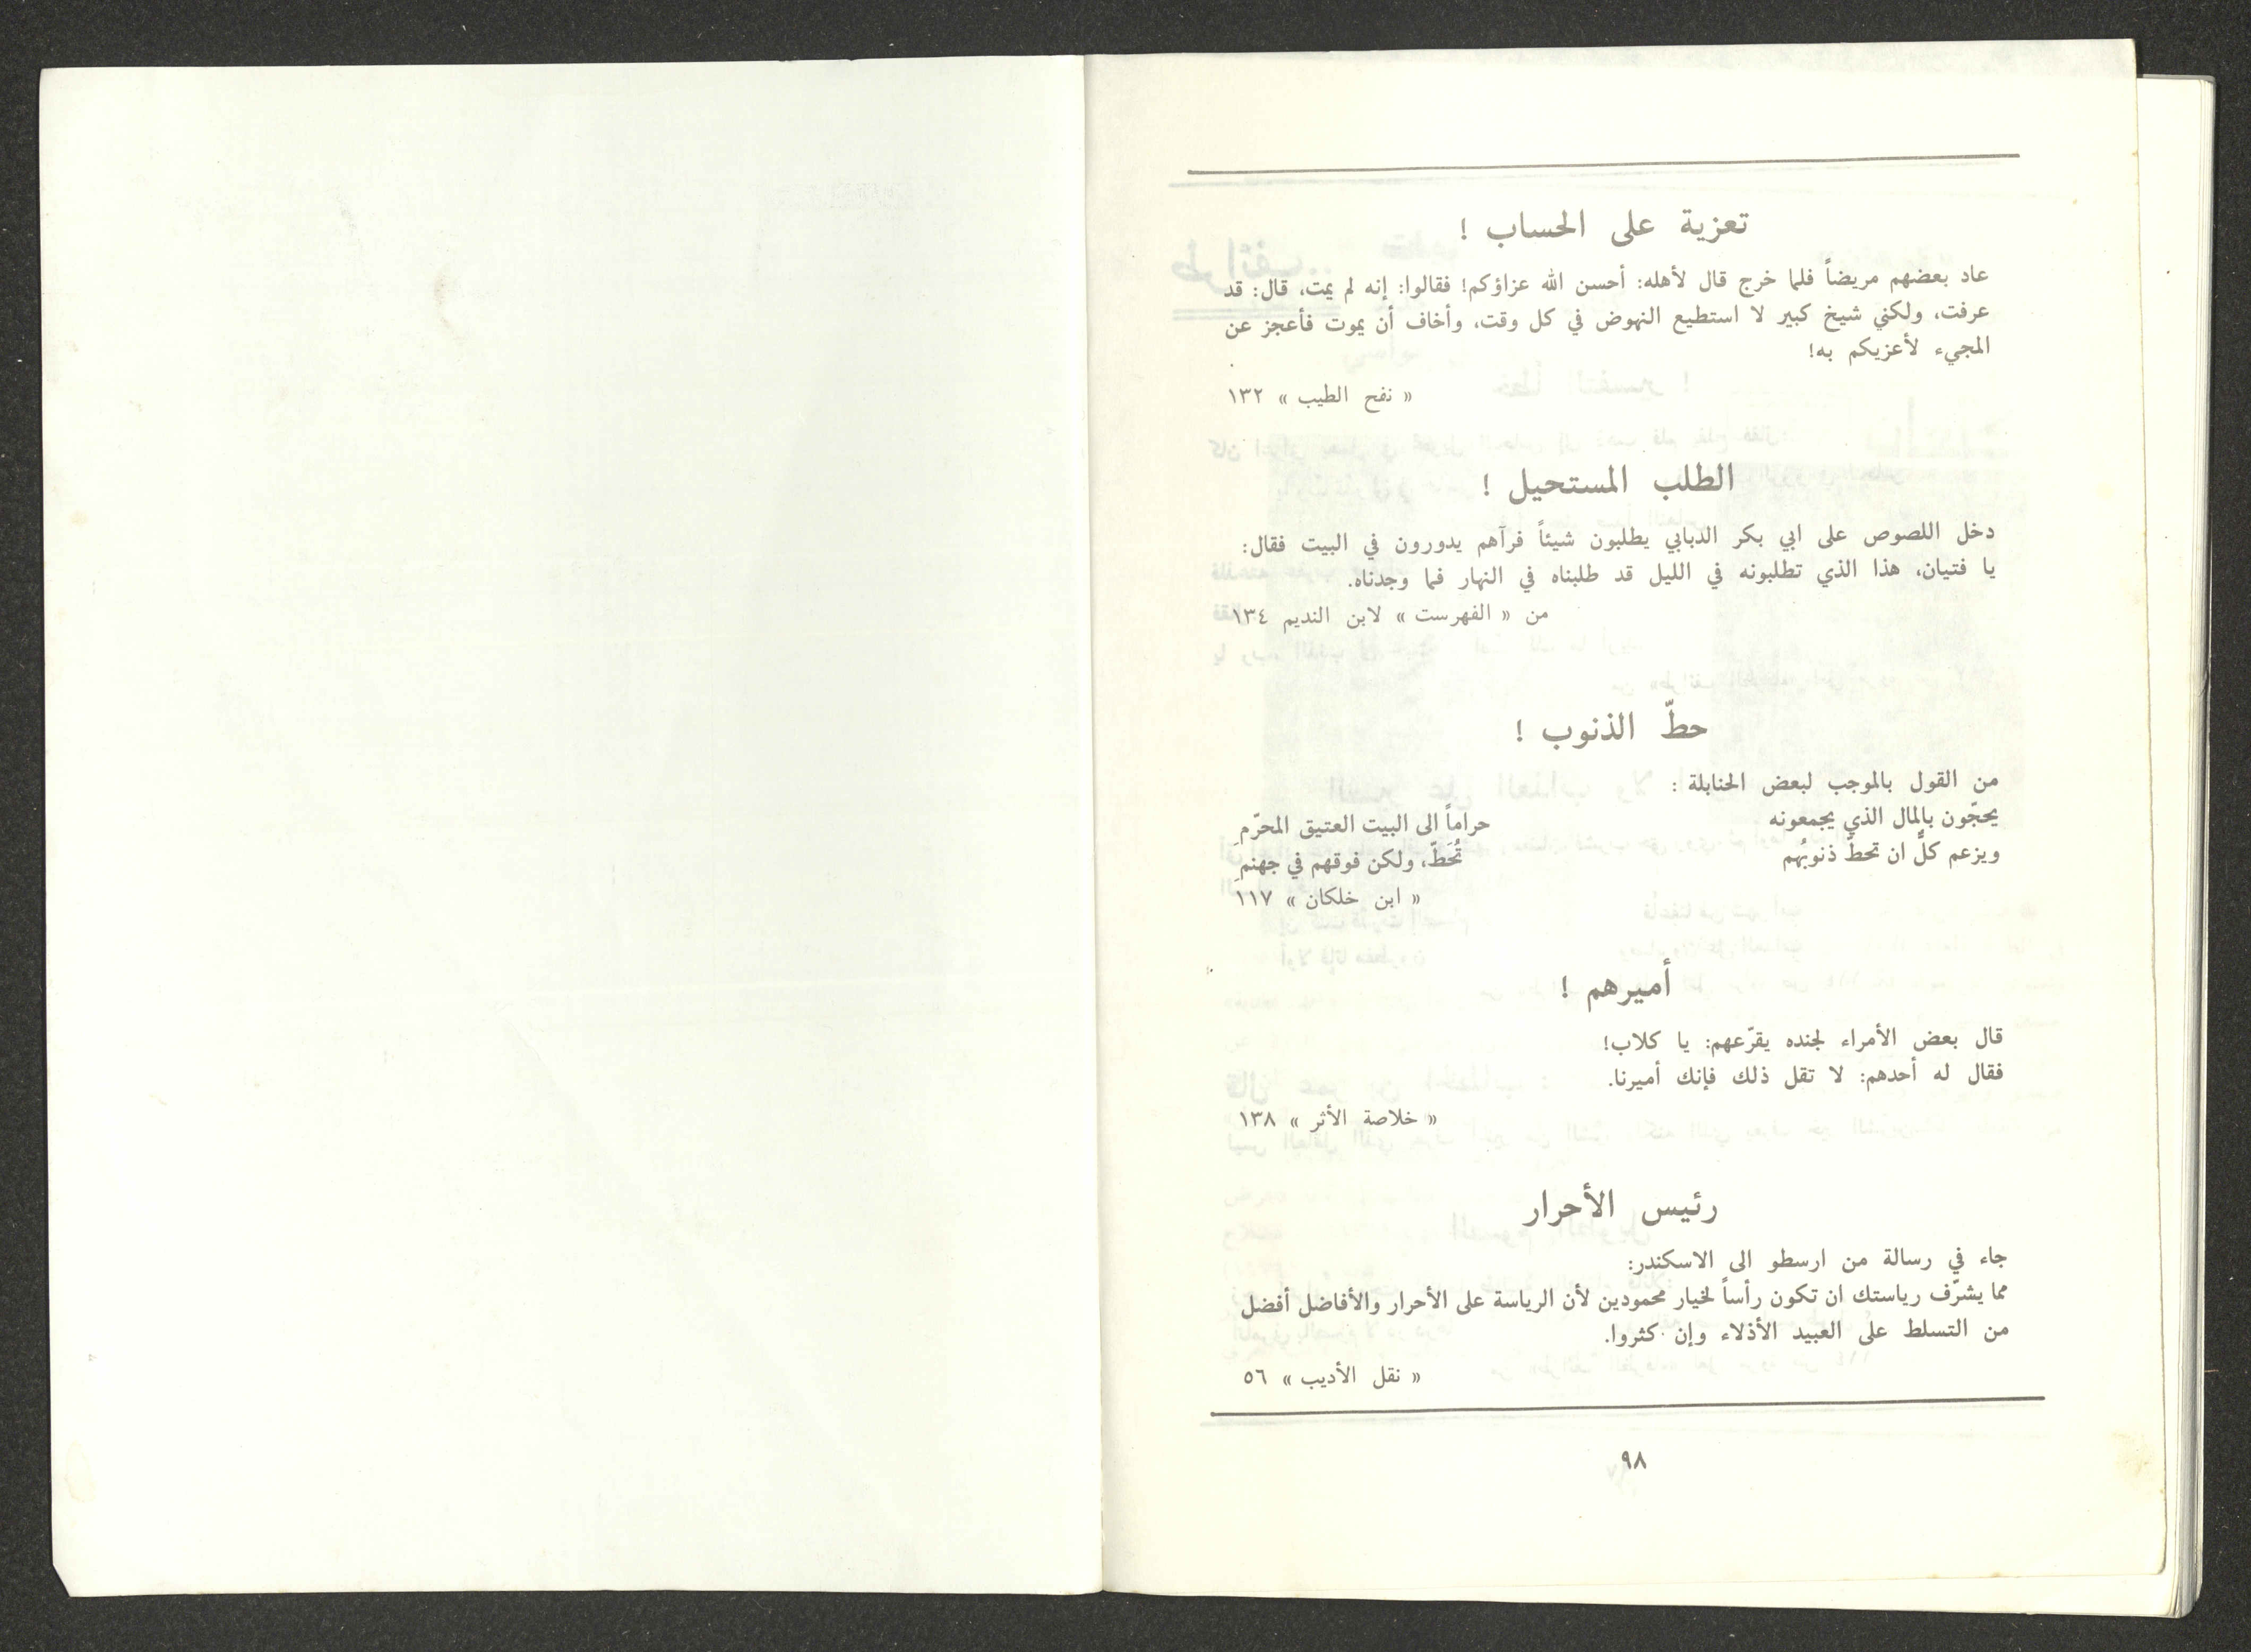 تعزية على الحساب !
عاد بعضهم مريضاً فلما خرج قال لأهله: أحسن الله عزاؤكم! فقالوا: إنه لم يمت، قال: قد
عرفت، ولكني شيخ كبير لا استطيع النهوض في كل وقت، وأخاف أن يموت فأعجز عن
المجيء لأعزيكم به!
« نفح الطيب » ١٣٢
الطلب المستحيل !
دخل اللصوص على ابي بكر الدبابي يطلبون شيئاً فرآهم يدورون في البيت فقال:
يا فتيان، هذا الذي تطلبونه في الليل قد طلبناه في النهار فما وجدناه.
من « الفهرست » لابن النديم ١٣٤
حطّ الذنوب !
من القول بالموجب لبعض الحنابلة :
يحجّون بالمال الذي يجمعونه حراماً الى البيت العتيق المحرّمِ
ويزعم كلٌّ ان تحطّ ذنوبُهم تُحَطّ، ولكن فوقهم في جهنمِ
« ابن خلكان » ١١٧
أميرهم !
قال بعض الأمراء لجنده يقرّعهم: يا كلاب!
فقال له أحدهم: لا تقل ذلك فإنك أميرنا.
« خلاصة الأثر » ١٣٨
رئيس الأحرار
جاء في رسالة من ارسطو الى الاسكندر:
مما يشرّف رياستك ان تكون رأساً لخيار محمودين لأن الرياسة على الأحرار والأفاضل أفضل
من التسلط على العبيد الأذلاء وإن كثروا.
« نقل الأديب » ٥٦
٩٨